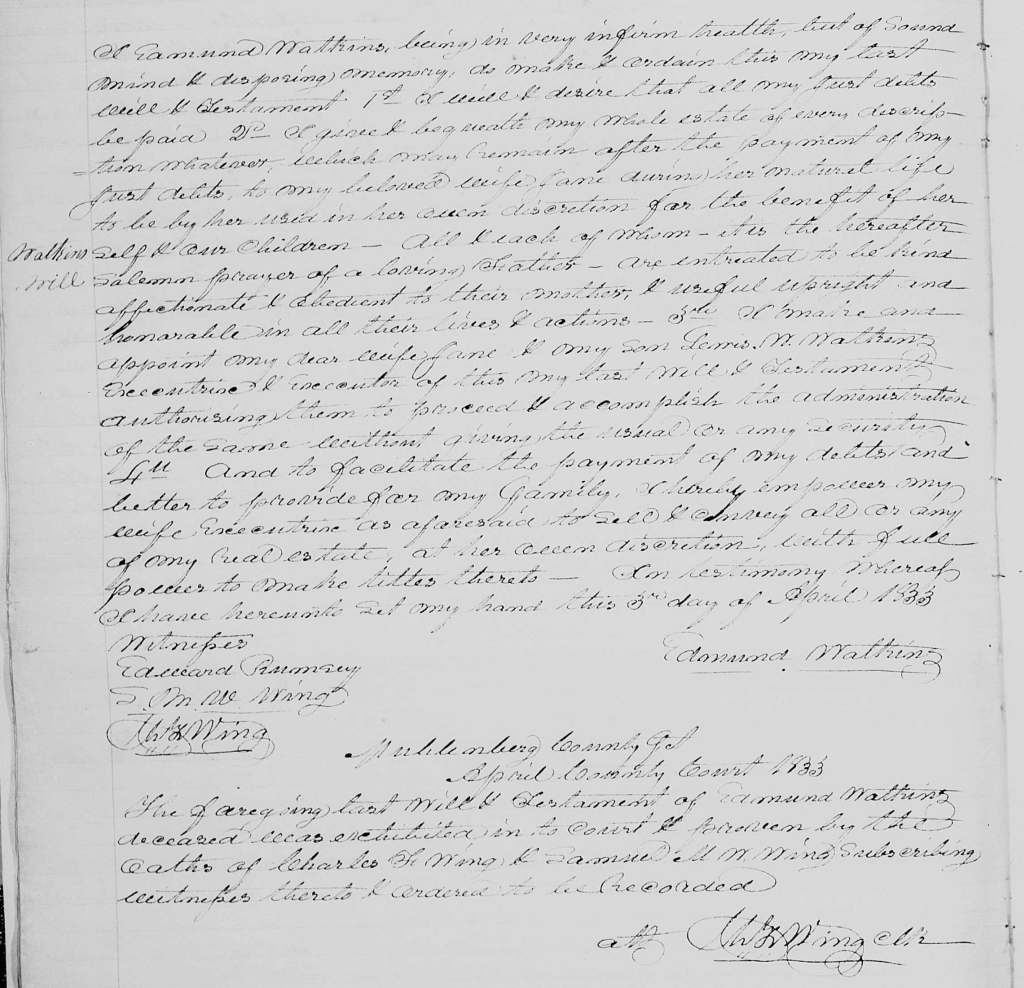 I Edmund Watkins, being in very infirm health, but of Sound
mind & disposing memory, do make & ordain this my last
will & Testament 1st I will & desire that all my just debts
be paid 2nd I give & bequeath my whole estate of every descrip-
-tion whatever, which may remain after the payment of my
just debts, to my beloved wife Jane during her natural life
to be by her used in her own discretion for the benefit of her
Watkins Will
Self & our Children – All & each of whom – it is the hereafter
Solemn prayer of a loving Father – are entreated to be kind
affectionate & obedient to their mother, & useful upright and
honorable in all their lives & actions – 3rd I make and
appoint my dear wife Jane & my Son Lewis W. Watkins
Executrix & Executor of this my last Will & Testament
authorising them to proceed & accomplish the administration
of the same without giving the usual or any security
4th And to facilitate the payment of my debts and
better to provide for my Family, I hereby empower my
wife Executrix as aforesaid to Sell & convey all or any
of my real estate, at her own discretion, with full
power to make titles thereto – In testimony whereof
I have hereunto Set my hand this 3rd day of April 1833
Witnesses
Edmund Watkins
Edward Rumsey
S. M. W. Wing
Ch F Wing
Muhlenberg County
April County Court 1833
The foregoing last Will & Testament of Edmund Watkins
deceased was exhibited in to Court & proven by the
Oaths of Charles F Wing & Samuel M W. Wing Subscribing
witnesses thereto & ordered to be Recorded
att Ch F Wing Clk